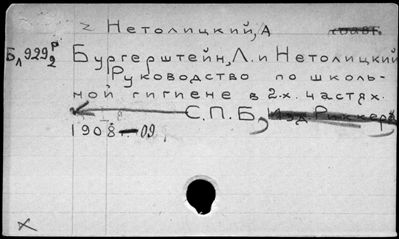 Нетолицкий, А
Бл 929 Р/2
Бургерштейн, Л. и Нетолицкий
Руководство по школь-
ной гигиене в 2-х. частях.
С.П.Б, Изд Риккера
1908-09